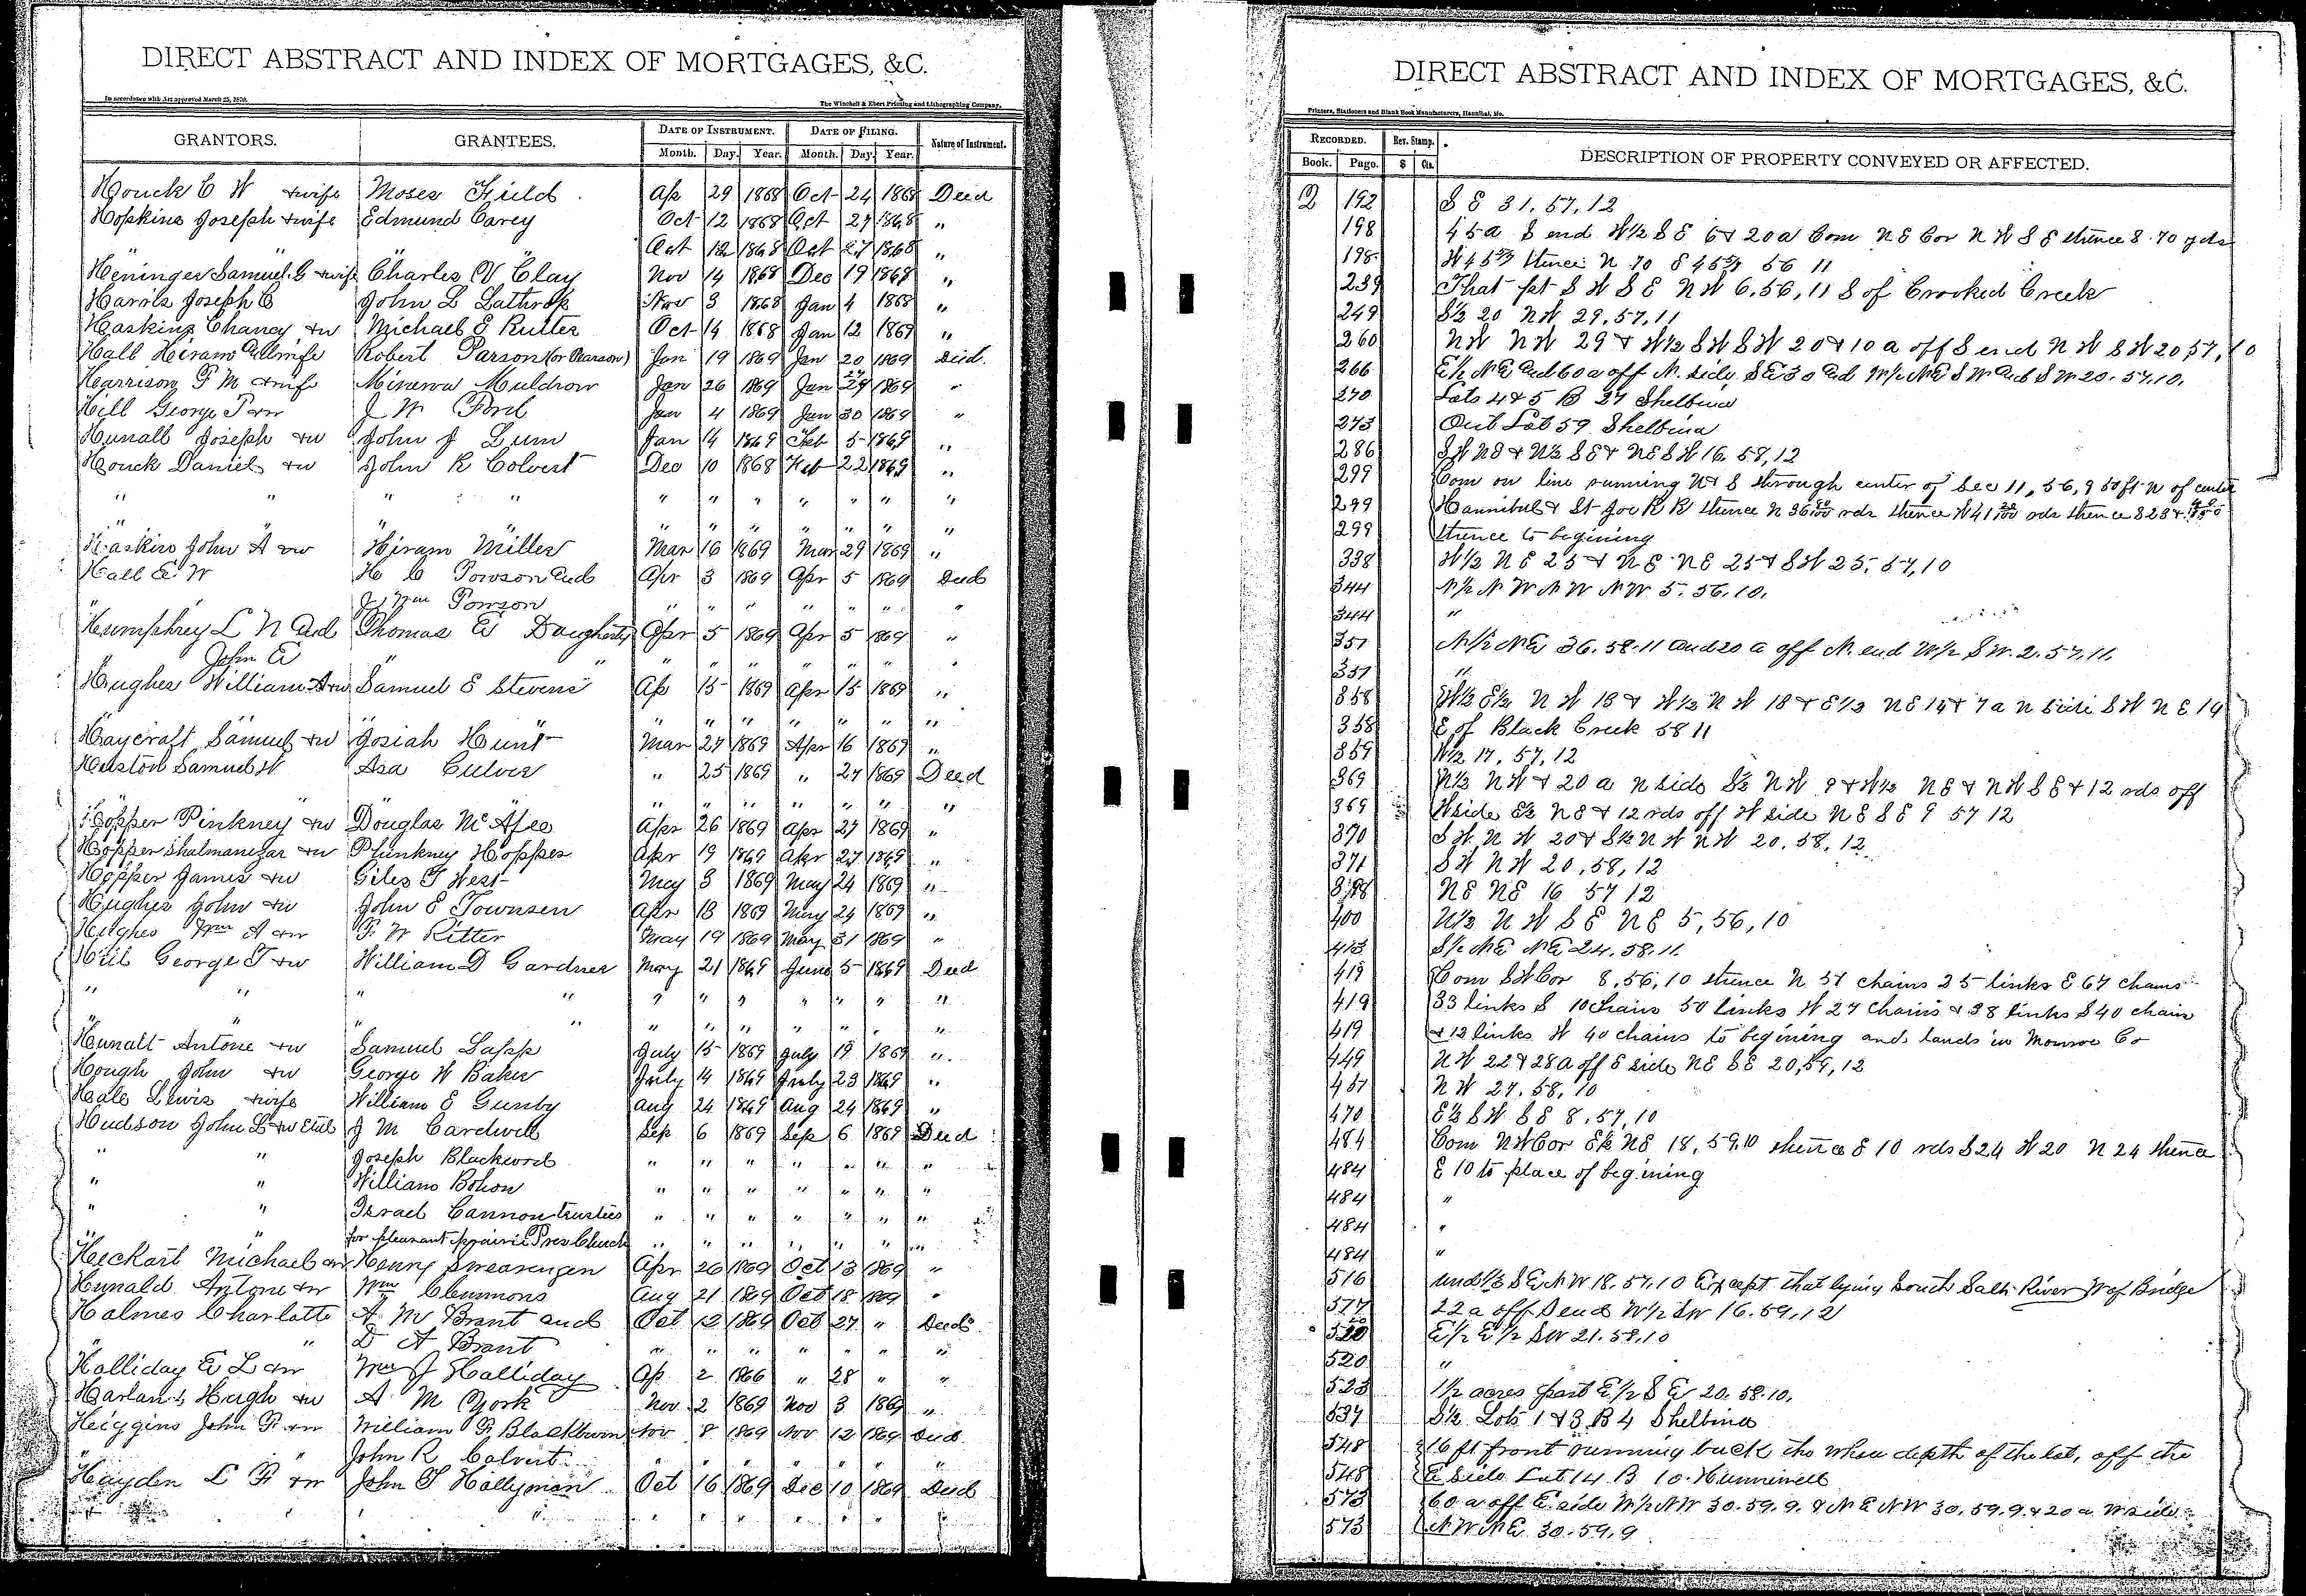 DIRECT ABSTRACT AND INDEX OF MORTGAGES, &C.
In accordance with Act approved March 25, 1870.
The Winchell & Ebert Printing and Lithographing Company.
GRANTORS. GRANTEES. DATE OF INSTRUMENT. DATE OF FILING. Nature of Instrument.
Month. Day. Year. Month. Day. Year.
Houck C W & wife Moses Field Ap 29 1868 Oct 24 1868 Deed
Hopkins Joseph & wife Edmund Carey Oct 12 1868 Oct 27 1868 "
" " Oct 12 1868 Oct 27 1868 "
Heninger Samuel G & wife Charles V Clay Nov 14 1868 Dec 19 1868 "
Harris Joseph C John L Lathrop Nov 3 1868 Jan 4 1868 "
Haskins Chancy & w Michael E Rutter Oct 14 1868 Jan 12 1869 "
Hall Hiram & wife Robert Parson (or Pearson) Jan 19 1869 Jan 20 1869 Deed
Harrison F M & wife Minerva Muldrow Jan 26 1869 Jan 29 1869 "
Hill George T & w J W Ford Jan 4 1869 Jan 30 1869 "
Hunalt Joseph & w John J Lum Jan 14 1869 Feb 5 1869 "
Houck Daniel & w John R Colvert Dec 10 1868 Feb 22 1869 "
" " " " " " " " " " "
" " " " " " " "
Haskins John A & w Hiram Miller Mar 16 1869 Mar 29 1869 "
Hall E W H C Powson and Apr 3 1869 Apr 5 1869 Deed
J Wm Powson " " " " " " "
Humphrey L N and Thomas E Daugherty Apr 5 1869 Apr 5 1869 "
John E " " " " " " " " "
Hughes William A & w Samuel E Stevens Ap 15 1869 Apr 15 1869 "
" " " " " " " " "
Haycraft Samuel & w Josiah Hunt Mar 27 1869 Apr 16 1869 "
Huston Samuel W Asa Culver " 25 1869 " 27 1869 Deed
" " " " " " "
Hopper Pinkney & w Douglas McAfee Apr 26 1869 Apr 27 1869 "
Hopper Shalmanezar & w Plinkney Hopper Apr 19 1869 Apr 27 1869 "
Hopper James & w Giles T West May 3 1869 May 24 1869 "
Hughes John & w John E Townsen Apr 13 1869 May 24 1869 "
Hughes Wm A & w F. W Ritter May 19 1869 May 31 1869 "
Hill George T & w William D Gardner May 21 1869 June 5 1869 Deed
" " " " " " " " " " "
" " " " " " " " " "
Hunalt Antone & w Samuel Lapp July 15 1869 July 19 1869 "
Hough John & w George W Baker July 14 1869 July 23 1869 "
Hale Lewis & wife William E Gunby Aug 24 1869 Aug 24 1869 "
Hudson John L & w Etal J M Cardwell Sep 6 1869 Sep 6 1869 Deed
" " Joseph Blackword " " " " " " "
" " William Bohon " " " " " " "
" " Israel Cannon trustees " " " " " " "
" for pleasant prairie Pres Church " " " " " " "
Heckart Michael & w Henry Swearengen Apr 26 1869 Oct 13 1869 "
Hunald Antone & w Wm Clemmons Aug 21 1869 Oct 18 1869 "
Holmes Charlotte A. M Brant and Oct 12 1869 Oct 27 " Deed
" D A Brant " " " " " " "
Holliday E L & w Wm J Holliday Ap 2 1866 " 28 " "
Harlan Hugh & w A M York Nov 2 1869 Nov 3 1869 "
Higgins John F & w William F Blackburn Nov 8 1869 Nov 12 1869 Deed
" John R Colvert " " " " " " "
Hayden L F & w John T Hollyman Oct 16 1869 Dec 10 1869 Deed
DIRECT ABSTRACT AND INDEX OF MORTGAGES, &C.
Printers, Stationers and Blank Book Manufacturers, Hannibal, Mo.
RECORDED. Rev. Stamp. DESCRIPTION OF PROPERTY CONVEYED OR AFFECTED.
Book. Page. $ Cts.
2 192 S E 31, 57, 12
198 45a S end W½ S E 6 & 20a Com N E Cor N W S E thence S 70 yds
198 thence N 70 56 11
239 That pt S W S E N W 6, 56, 11 S of Crooked Creek
249 S½ 20 N W 29, 57, 11
260 N W N W 29 & W½ S W S W 20 & 10 a off S end N W S W 20 57, 10
266 E½ N E and 60a off N. side S E 30 and W½ N E S W and S W 20. 57. 10.
270 Lots 4 & 5 B 27 Shelbina
273 Out Lot 59 Shelbina
286 S W N E & N½ S E & N E S W 16, 58, 12
299 Com on line running N & S through center of Sec 11, 56, 9 50 ft N of center
299 Hannibal & St Joe R R thence N rds thence W rds thence
299 thence to begining
338 W½ N E 25 & N E N E 25 & S W 25, 57, 10
344 N½ N W N W N W 5. 56. 10.
344 "
351 N½ N E 36. 58. 11 and 20 a off N. end W½ S W. 2. 57. 11.
351 "
358 W½ E½ N W 13 & W½ N W 18 & E½ N E 14 & 7 a N side S W N E 14
358 E of Black Creek 58 11
359 W½ 17, 57, 12
369 N½ N W & 20 a N side S½ N W 9 & W½ N E & N W S E & 12 rds off
369 W side E½ N E & 12 rds off W side N E S E 9 57 12
370 S W N W 20 & S½ N W N W 20. 58. 12
371 S W N W 20, 58, 12
398 N E N E 16 57 12
400 N½ N W S E N E 5, 56, 10
413 S½ N E N E 24. 58. 11.
419 Com S W Cor 8, 56, 10 thence N 57 chains 25 links E 67 chains
419 33 links S 10 chains 50 links W 27 chains & 38 links S 40 chain
419 & 12 links W 40 chains to begining and lands in Monroe Co
449 N W 22 & 28 a off E side N E S E 20, 59, 12
457 N W 27. 58, 10
470 E½ S W S E 8, 57, 10
484 Com N W Cor E½ N E 18, 59, 10 thence E 10 rds S 24 W 20 N 24 thence
484 E 10 to place of begining
484 "
484 "
484 "
516 und ⅓ S E N W 18. 57. 10 Except that lying South Salt River W of Bridge
517 22 a off S end W½ S W 16. 59. 12
520 E½ E½ S W 21. 58. 10
520 "
523 1½ acres part E½ S E 20. 58. 10.
537 S½ Lots 1 & 3 B 4 Shelbina
548 16 ft front running back the whole depth of the lot, off the
548 E side Lot 14 B 10 Hunnewell
573 60 a off E side W½ N W 30. 59. 9. & N E N W 30. 59. 9. & 20 a W side
573 N W N E. 30. 59. 9